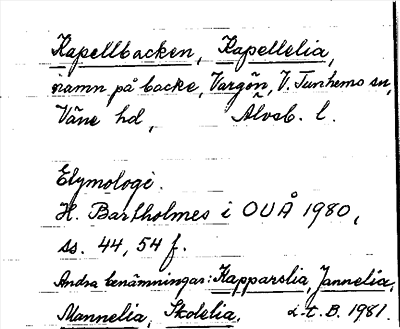 Kapellbacken, Kapellelia,
namn på backe, Vargön, V. Tunhems sn,
Väne hd, Älvsb. l.
Etymologi.
H. Bartholmes i OUÅ 1980,
ss. 44, 54 f.
Andra benämningar: Kapparslia, Jannelia,
Mannelia, Skolelia. L.t. B. 1981.